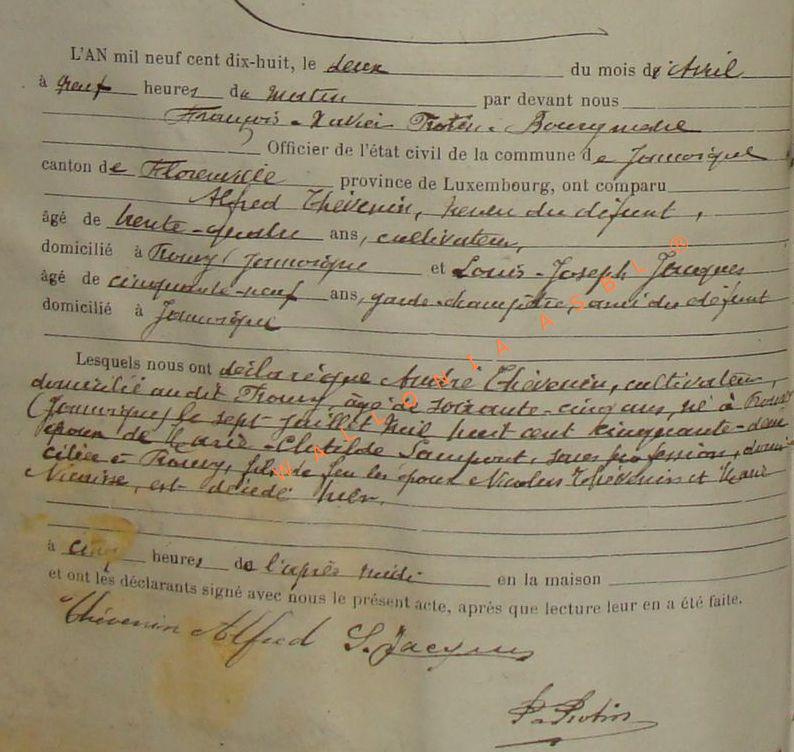 L'AN mil neuf cent dix-huit, le deux du mois d'Avril
à neuf heures du matin par devant nous
François-Xavier Protin, Bourgmestre
Officier de l'état civil de la commune de Jamoigne
canton de Florenville province de Luxembourg, ont comparu
Alfred Thévenin, neveu du défunt,
âgé de trente-quatre ans, cultivateur,
domicilié à Prouvy Jamoigne et Louis-Joseph Jacques
âgé de cinquante-neuf ans, garde-champêtre, ami du défunt
domicilié à Jamoigne
Lesquels nous ont déclaré que André Thévenin, cultivateur,
domicilié au dit Prouvy âgé de soixante-cinq ans, né à Prouvy
(Jamoigne) le sept juillet mil huit cent cinquante-deux
époux de Marie-Clotilde Lampont, sans profession, domi
ciliée à Prouvy, fils de feu les époux Nicolas Thévenin et Marie
Nicaisse, est décédé hier
à cinq heures de l'après midi en la maison
et ont les déclarants signé avec nous le présent acte, après que lecture leur en a été faite.
Thévenin Alfred L. Jacques
P. Protin
WALLONIA ASBL ®